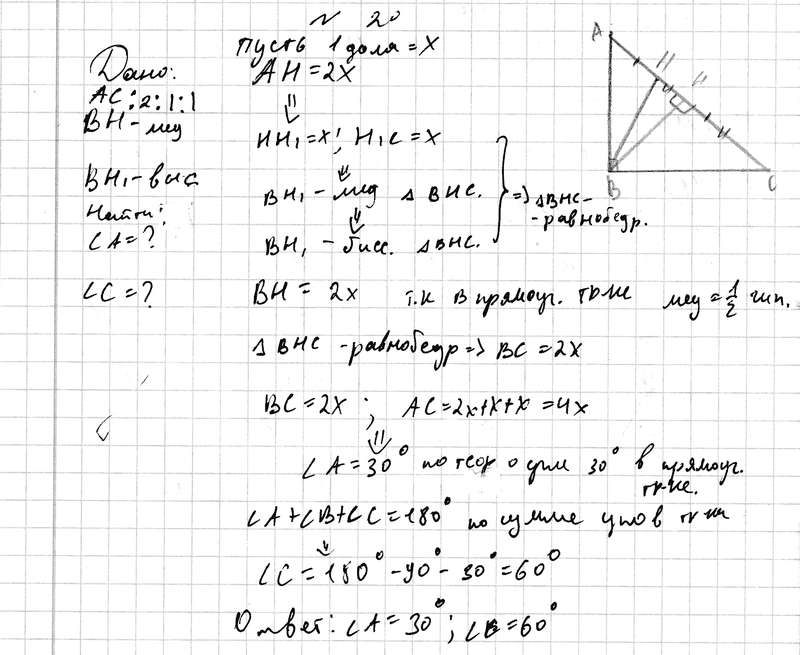 N 20
Дано:
AC:2:1:1
BH - мед
BH₁ - выс
Найти:
∠A = ?
∠C = ?
пусть 1 доля = x
AH = 2x
⇓
HH₁ = x; H₁C = x
⇓
BH₁ - мед △ BHC.
⇓
BH₁ - бисс. △BHC.
=> △BHC -
- равнобедр.
BH = 2x т.к в прямоуг. тр-ке мед = 1/2 гип.
△ BHC - равнобедр => BC = 2x
BC = 2x ; AC = 2x+x+x = 4x
⇓
∠A = 30° по теор о угле 30° в прямоуг.
тр-ке.
∠A+∠B+∠C = 180° по сумме углов тр-ка
⇓
∠C = 180° - 90° - 30° = 60°
Ответ: ∠A = 30°; ∠B = 60°
A
H
H
H
B
C